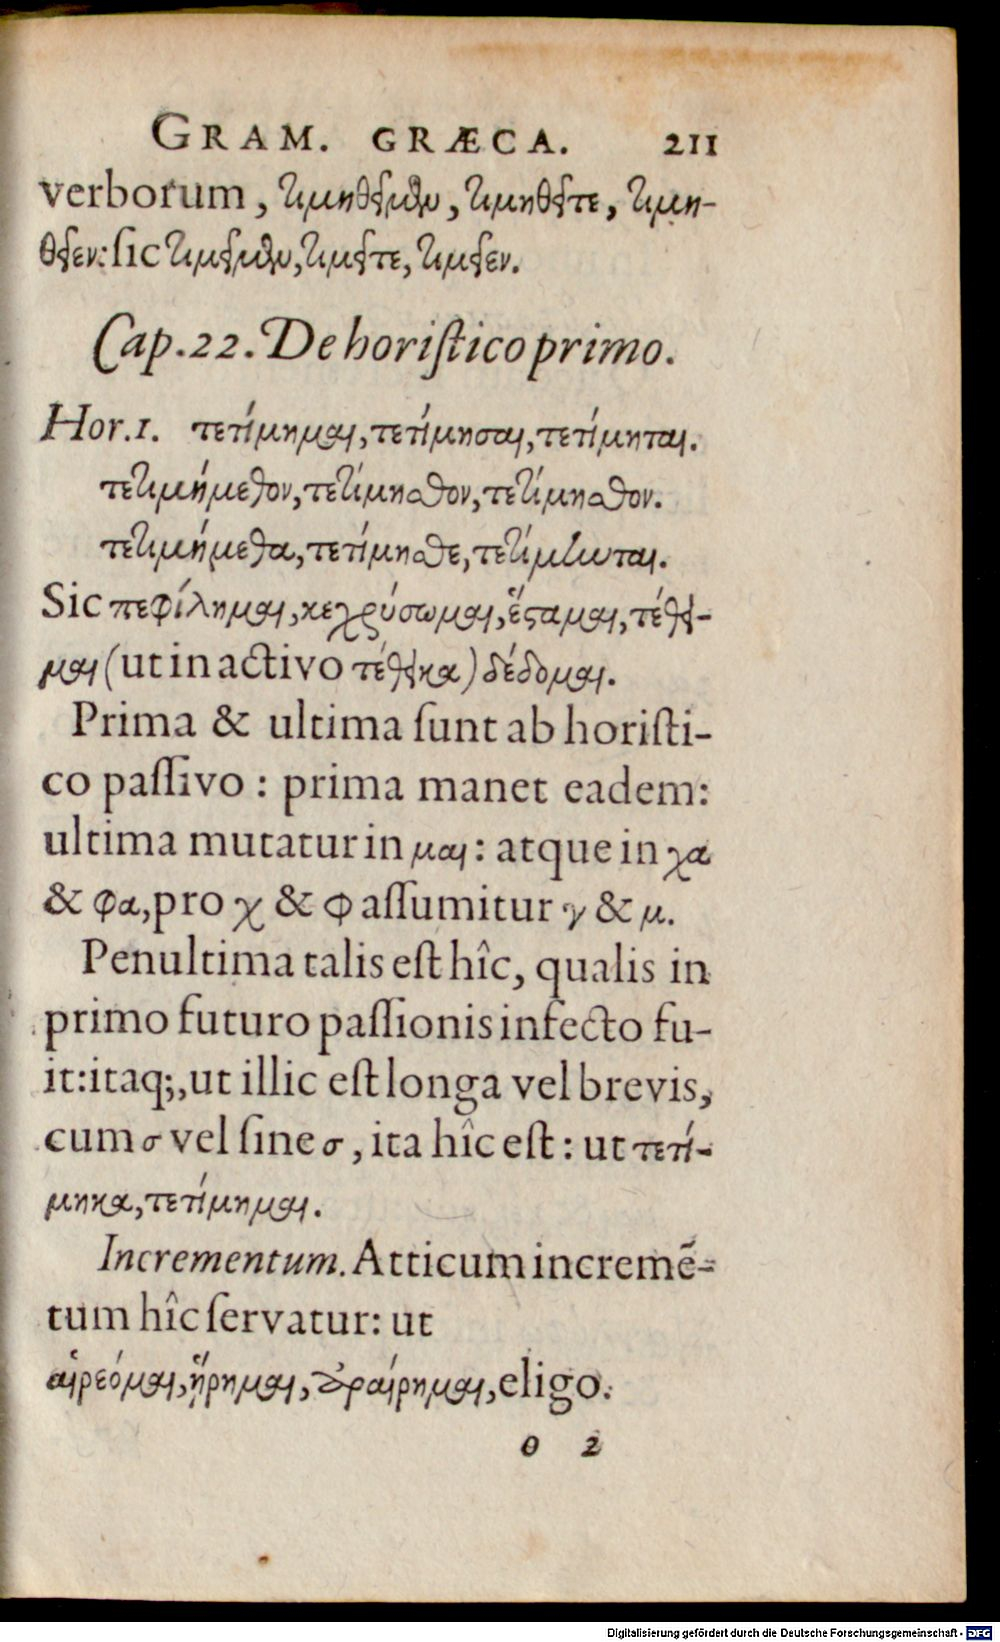 GRAM. GRÆCA. 211
verborum, τιμηθεῖμεν, τιμηθεῖτε, τιμη-
θεῖεν: ſic τιμεῖμεν, τιμεῖτε, τιμεῖεν.
Cap. 22. De horiſtico primo.
Hor. 1. τετίμημαι, τετίμησαι, τετίμηται.
τετιμήμεθον, τετίμησθον, τετίμησθον.
τετιμήμεθα, τετίμησθε, τετίμηνται.
Sic πεφίλημαι, κεχρύσωμαι, ἕσαμαι, τέθει-
μαι (ut in activo τέθεικα) δέδομαι.
Prima & ultima ſunt ab horiſti-
co paſſivo : prima manet eadem:
ultima mutatur in μαι : atque in χα
& φα, pro χ & φ aſſumitur γ & μ.
Penultima talis eſt hîc, qualis in
primo futuro paſſionis infecto fu-
it: itaq;, ut illic eſt longa vel brevis,
cum σ vel ſine σ, ita hîc eſt : ut τετί-
μηκα, τετίμημαι.
Incrementum. Atticum incremẽ-
tum hîc ſervatur: ut
αἱρεόμαι, ᾕρημαι, ἀραίρημαι, eligo.
o 2
Digitalisierung gefördert durch die Deutsche Forschungsgemeinschaft - DFG